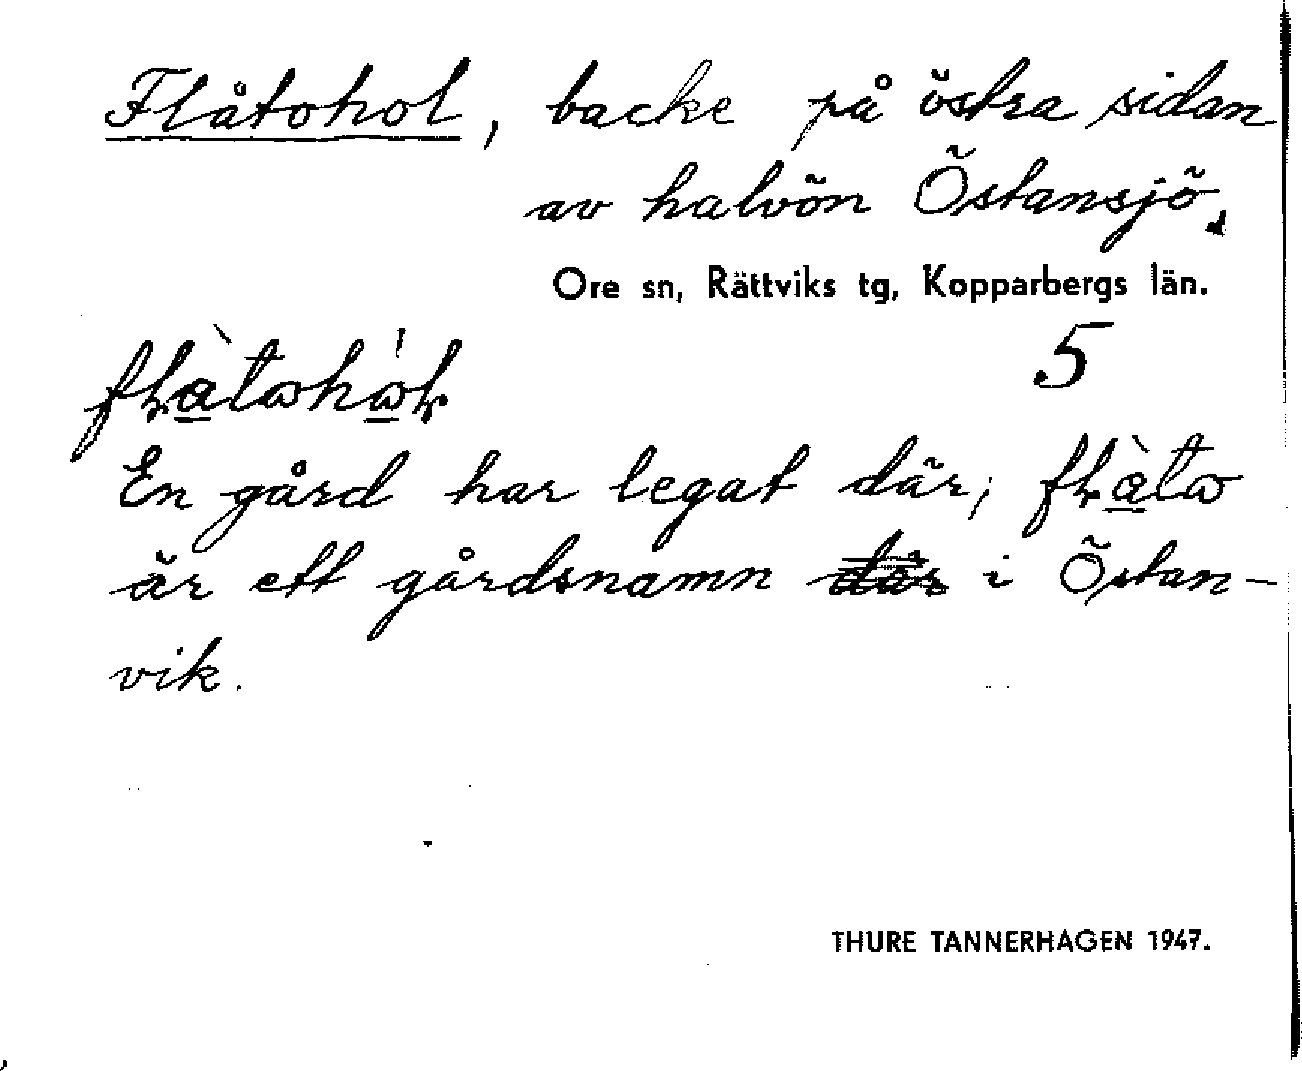 Flåtohol, backe på östra sidan
av halvön Östansjö.
Ore sn, Rättviks tg, Kopparbergs län.
5
En gård har legat där;
är ett gårdsnamn där i Östan-
vik.
THURE TANNERHAGEN 1947.